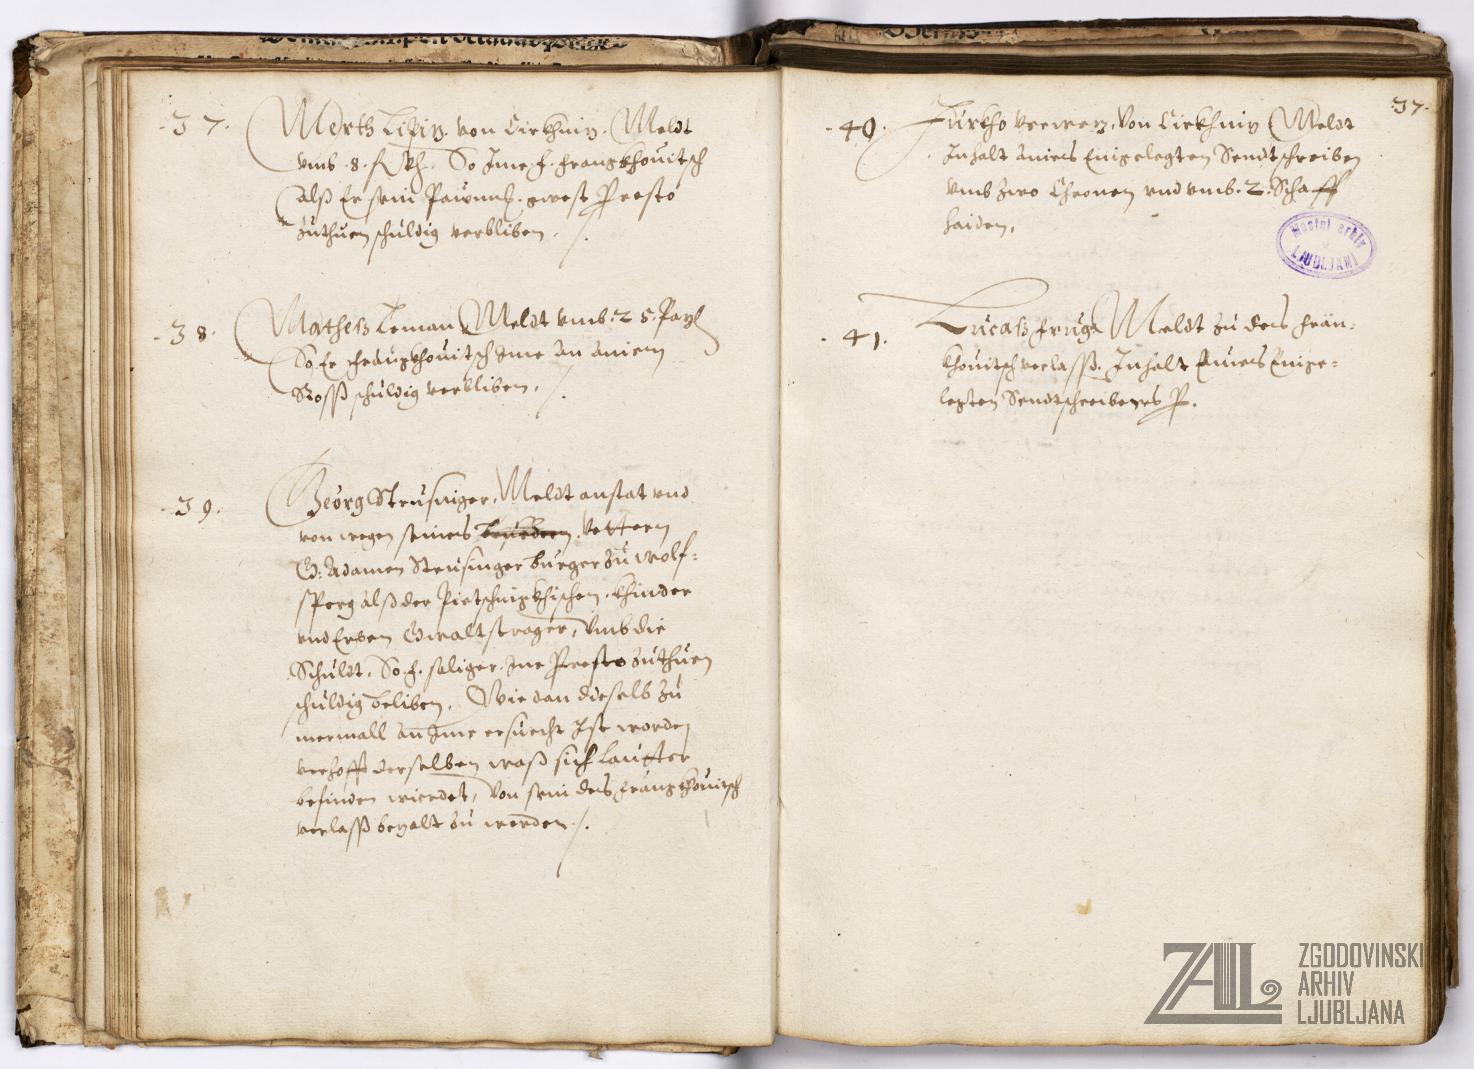 37.
Merth Lipiz von Cirkhniz. Meldt
vmb .8. f Rh. So Ime F. Frangkhouitsch
alß Er sein Pawman. gwest Presto
Zuthuen schuldig verbliben.
38.
Mathes Leman Meldt vmb. 25. Pazl
So Er Frangkhouitsch Ime an ainem
Rosss schuldig verbliben.
39.
Georg Steusniger. Meldt anstat vnd
von wegen seines Vettern
G: Adamen Steusinger burger zu wolf-
sperg alß der Pietschnigkhischen. khinder
vnd Erben Gwaltstrager, Vmb die
Schuldt. So F. seliger. Ime Presto zuthuen
schuldig beliben. Wie dan dieselb zu
mermall an Ime ersuecht Ist worden
verhofft derselben waß sich lautter
befinden wierdet, Von sein des Frangkhouitsch
verlasß bezalt zu werden.
37.
40.
Jurkho von Cirkhniz Meldt
Inhalt aines Eingelegten Sendtschreiben
vmb zwo Chronen vnd vmb. 2. Schaff
haiden.
41.
Lucaß Meldt zu des Fran-
khouitsch verlasß. Inhalt Eines Einge-
legten Sendtschreibens P.
Mestni arhiv
LJUBLJANI
ZAL
ZGODOVINSKI
ARHIV
LJUBLJANA